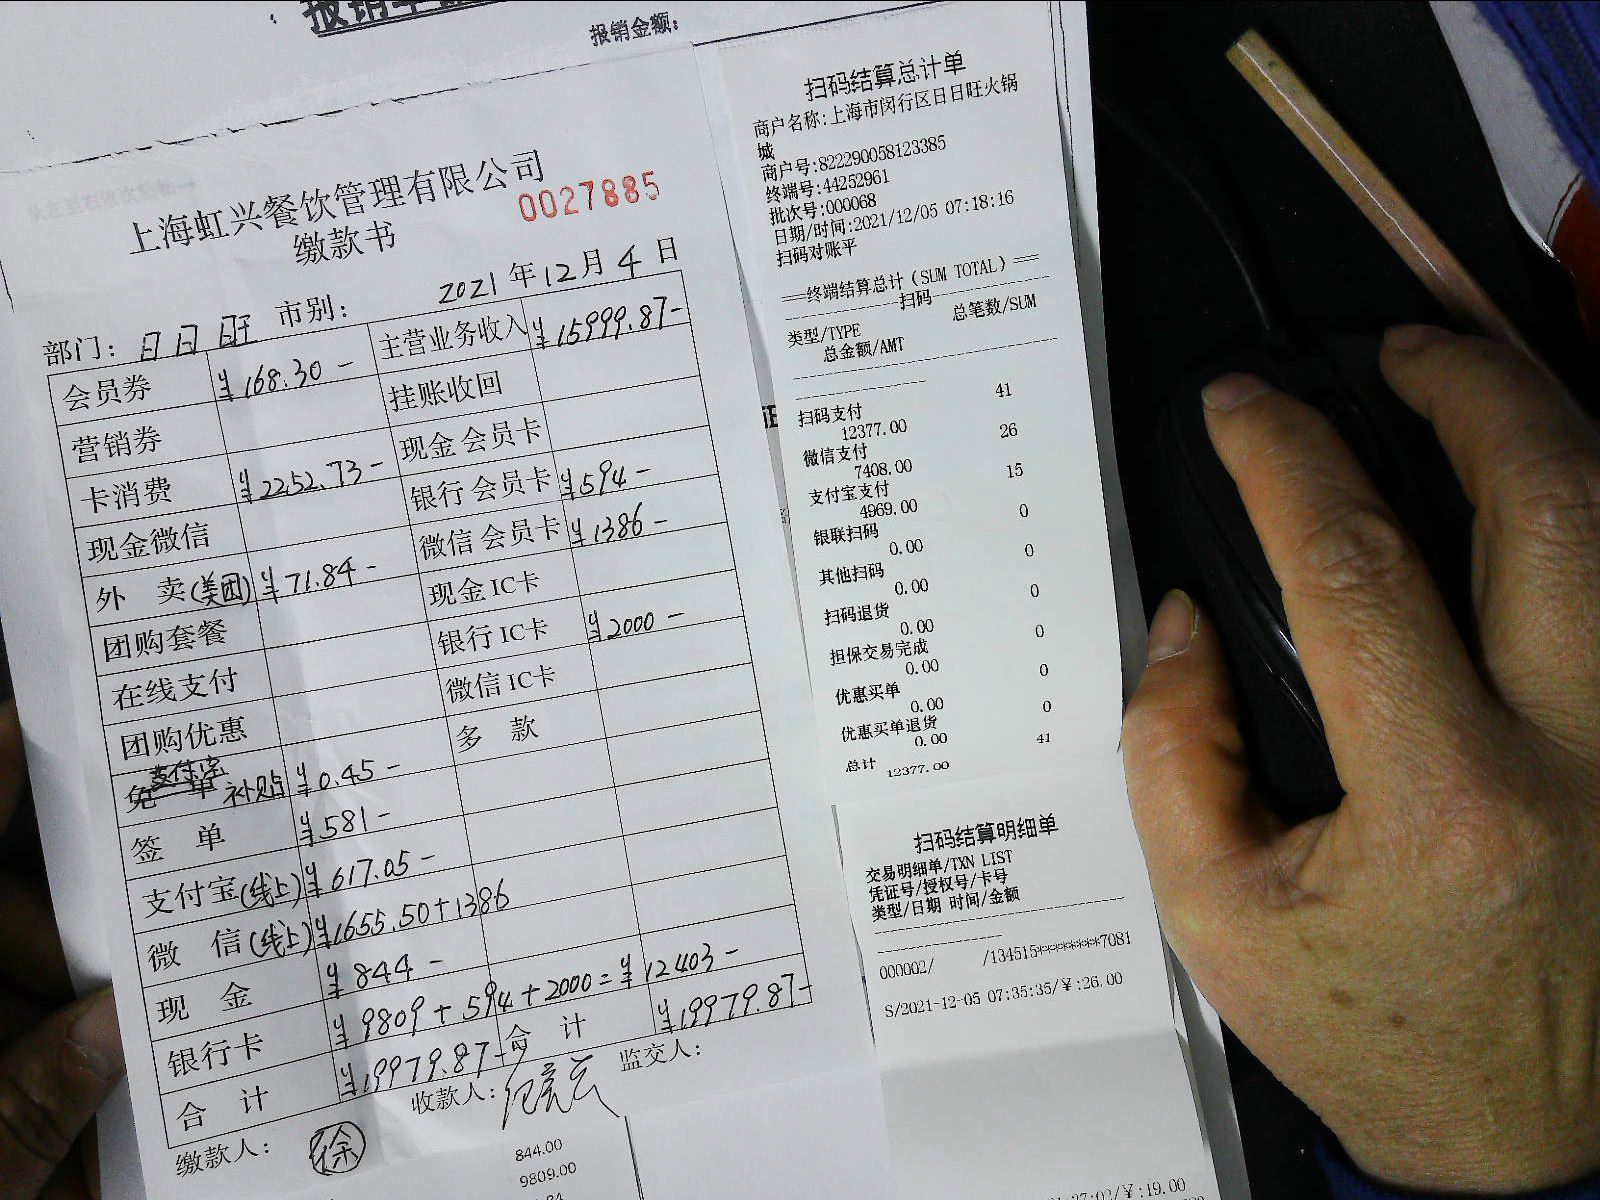 报销金额:
上海虹兴餐饮管理有限公司
缴款书
0027885
2021年12月4日
部门: 日日旺 市别:
会员券 ¥168.30- 主营业务收入 ¥15999.87-
营销券 挂账收回
卡消费 ¥2252.73- 现金会员卡
现金微信 银行会员卡 ¥594-
外卖(美团) ¥71.84- 微信会员卡 ¥1386-
团购套餐 现金IC卡
在线支付 银行IC卡 ¥2000-
团购优惠 微信IC卡
支付宝补贴 ¥0.45- 多款
签单 ¥581-
支付宝(线上) ¥617.05-
微信(线上) ¥1655.50+1386
现金 ¥844-
银行卡 ¥9809+594+2000=¥12403-
合计 ¥19979.87- 合计 ¥19979.87-
缴款人: 徐 收款人: 监交人:
844.00
9809.00
扫码结算总计单
商户名称:上海市闵行区日日旺火锅
城
商户号:822290058123385
终端号:44252961
批次号:000068
日期/时间:2021/12/05 07:18:16
扫码对账平
===终端结算总计(SUM TOTAL)===
扫码
类型/TYPE 总笔数/SUM
总金额/AMT
扫码支付 41
12377.00
微信支付 26
7408.00
支付宝支付 15
4969.00
银联扫码 0
0.00
其他扫码 0
0.00
扫码退货 0
0.00
担保交易完成 0
0.00
优惠买单 0
0.00
优惠买单退货 0
0.00
总计 41
12377.00
扫码结算明细单
交易明细单/TXN LIST
凭证号/授权号/卡号
类型/日期 时间/金额
000002/ /134515********7081
S/2021-12-05 07:35:35/¥:26.00
/¥:19.00